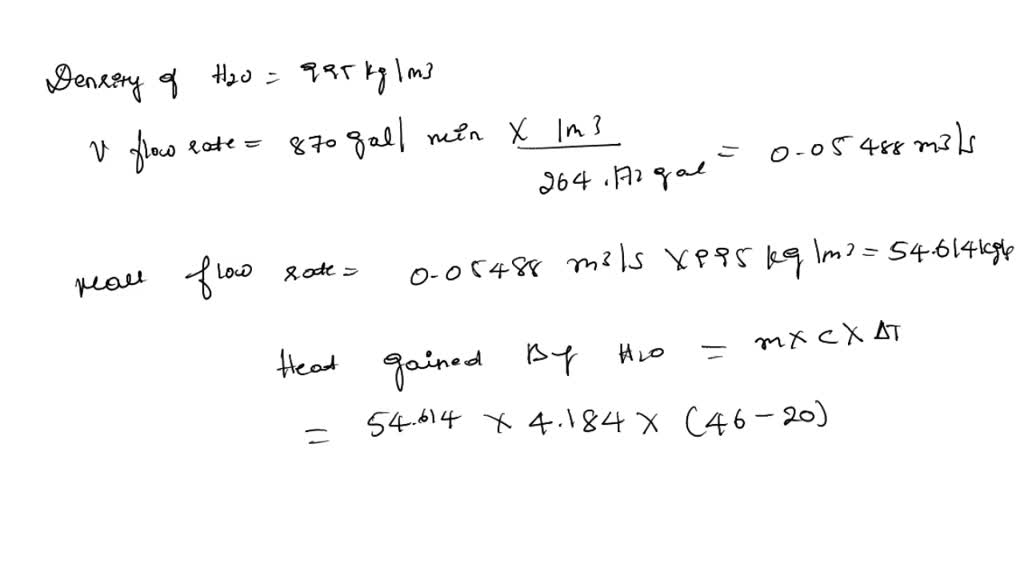 Density of H2O = 995 kg/m3
V flow rate = 870 gal/min X 1m3 / 264.172 gal = 0.05488 m3/s
Mass flow rate = 0.05488 m3/s X 995 kg/m3 = 54.614 kg/s
Heat gained By H2O = m x c x ΔT
= 54.614 x 4.184 x (46-20)